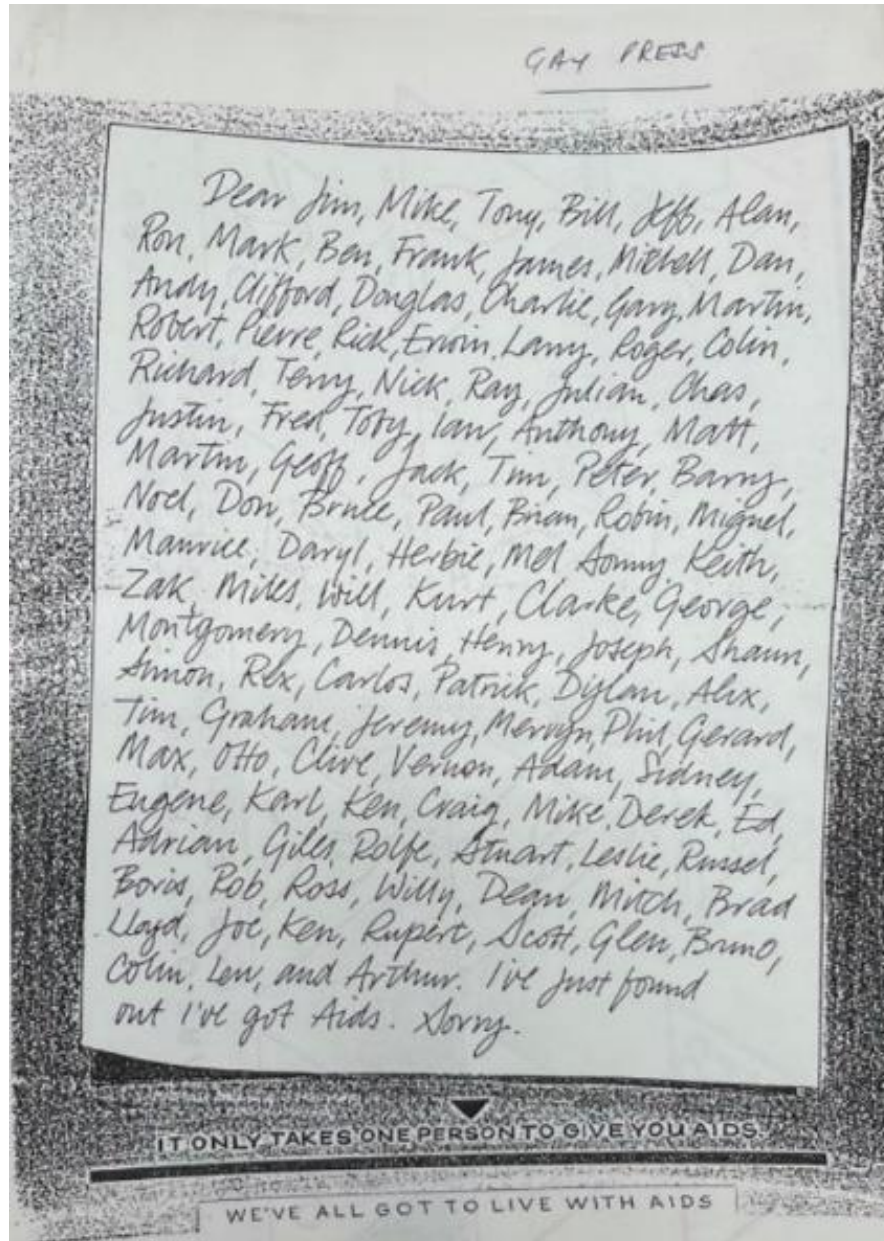 GAY PRESS
Dear Jim, Mike, Tony, Bill, Jeff, Alan,
Ron, Mark, Ben, Frank, James, Mitchell, Dan,
Andy, Clifford, Douglas, Charlie, Gary, Martin,
Robert, Pierre, Rick, Erwin, Larry, Roger, Colin,
Richard, Terry, Nick, Ray, Julian, Chas,
Justin, Fred, Toby, Ian, Anthony, Matt,
Martin, Geoff, Jack, Tim, Peter, Barry,
Noel, Don, Bruce, Paul, Brian, Robin, Miguel,
Maurice, Daryl, Herbie, Mel, Sonny, Keith,
Zak, Miles, Will, Kurt, Clarke, George,
Montgomery, Dennis, Henry, Joseph, Shaun,
Simon, Rex, Carlos, Patrick, Dylan, Alex,
Tim, Graham, Jeremy, Mervyn, Phil, Gerard,
Max, Otto, Clive, Vernon, Adam, Sidney,
Eugene, Karl, Ken, Craig, Mike, Derek, Ed,
Adrian, Giles, Rolfe, Stuart, Leslie, Russel,
Boris, Rob, Ross, Willy, Dean, Mitch, Brad
Lloyd, Joe, Ken, Rupert, Scott, Glen, Bruno,
Colin, Len, and Arthur. I've just found
out I've got Aids. Sorry.
IT ONLY TAKES ONE PERSON TO GIVE YOU AIDS.
WE'VE ALL GOT TO LIVE WITH AIDS